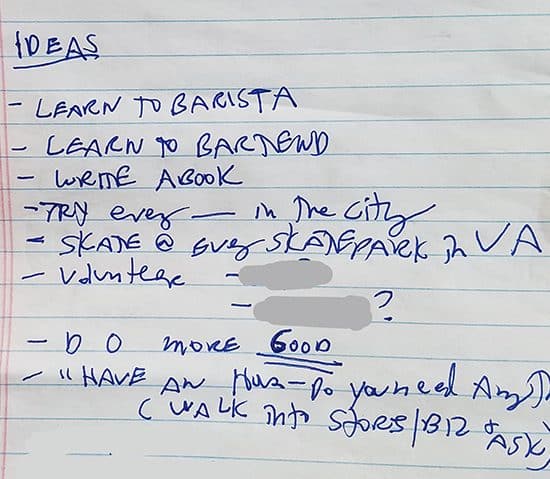 IDEAS
- LEARN TO BARISTA
- LEARN TO BARTEND
- WRITE A BOOK
- TRY every — in The City
- SKATE @ every SKATEPARK in VA
- Volunteer -
- ?
- DO MORE GOOD
- "HAVE AN Hour - Do you need Any
(WALK into STORES/BIZ & ASK)